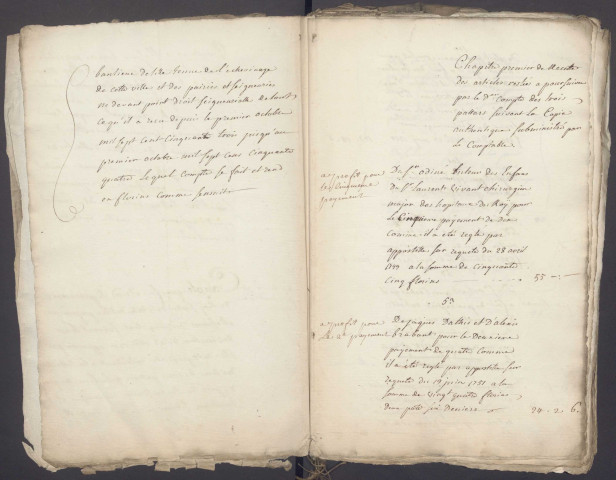 banlieue de la tenue de l'echevinage
de cette ville et des pairies et seigneuries
ne devant point droit seigneuriale
ce qu'il a reçu depuis le premier octobre
mil sept cent cinquante trois jusqu'au
premier octobre mil sept cens cinquante
quatre lequel compte se fait et rend
en florins comme
Chapitre premier de Recette
des articles a poursuivre
par le Dr compte des trois
parties suivant la Copie
authentique subministré par
le Comptable
a profit pour
le cinquieme
payement
Du Sr odine tuteur des Enfans
de Sr Laurent vivant chirurgien
major des hopitaux du Roy pour
le Cinquieme payement de
comme il a été reglé par
appostille sur requete du 28 avril
1749 a la somme de cinquante
cinq florins 55 - : -
53
a profit pour
le 2e payement
De Jaques Dathis et D'alexis
brabant pour le Deuxieme
payement de quatre comme
il a été reglé par appostille sur
requete du 19 juin 1751 a la
somme de vingt quatre florins
deux patars six deniers 24 - 2 - 6